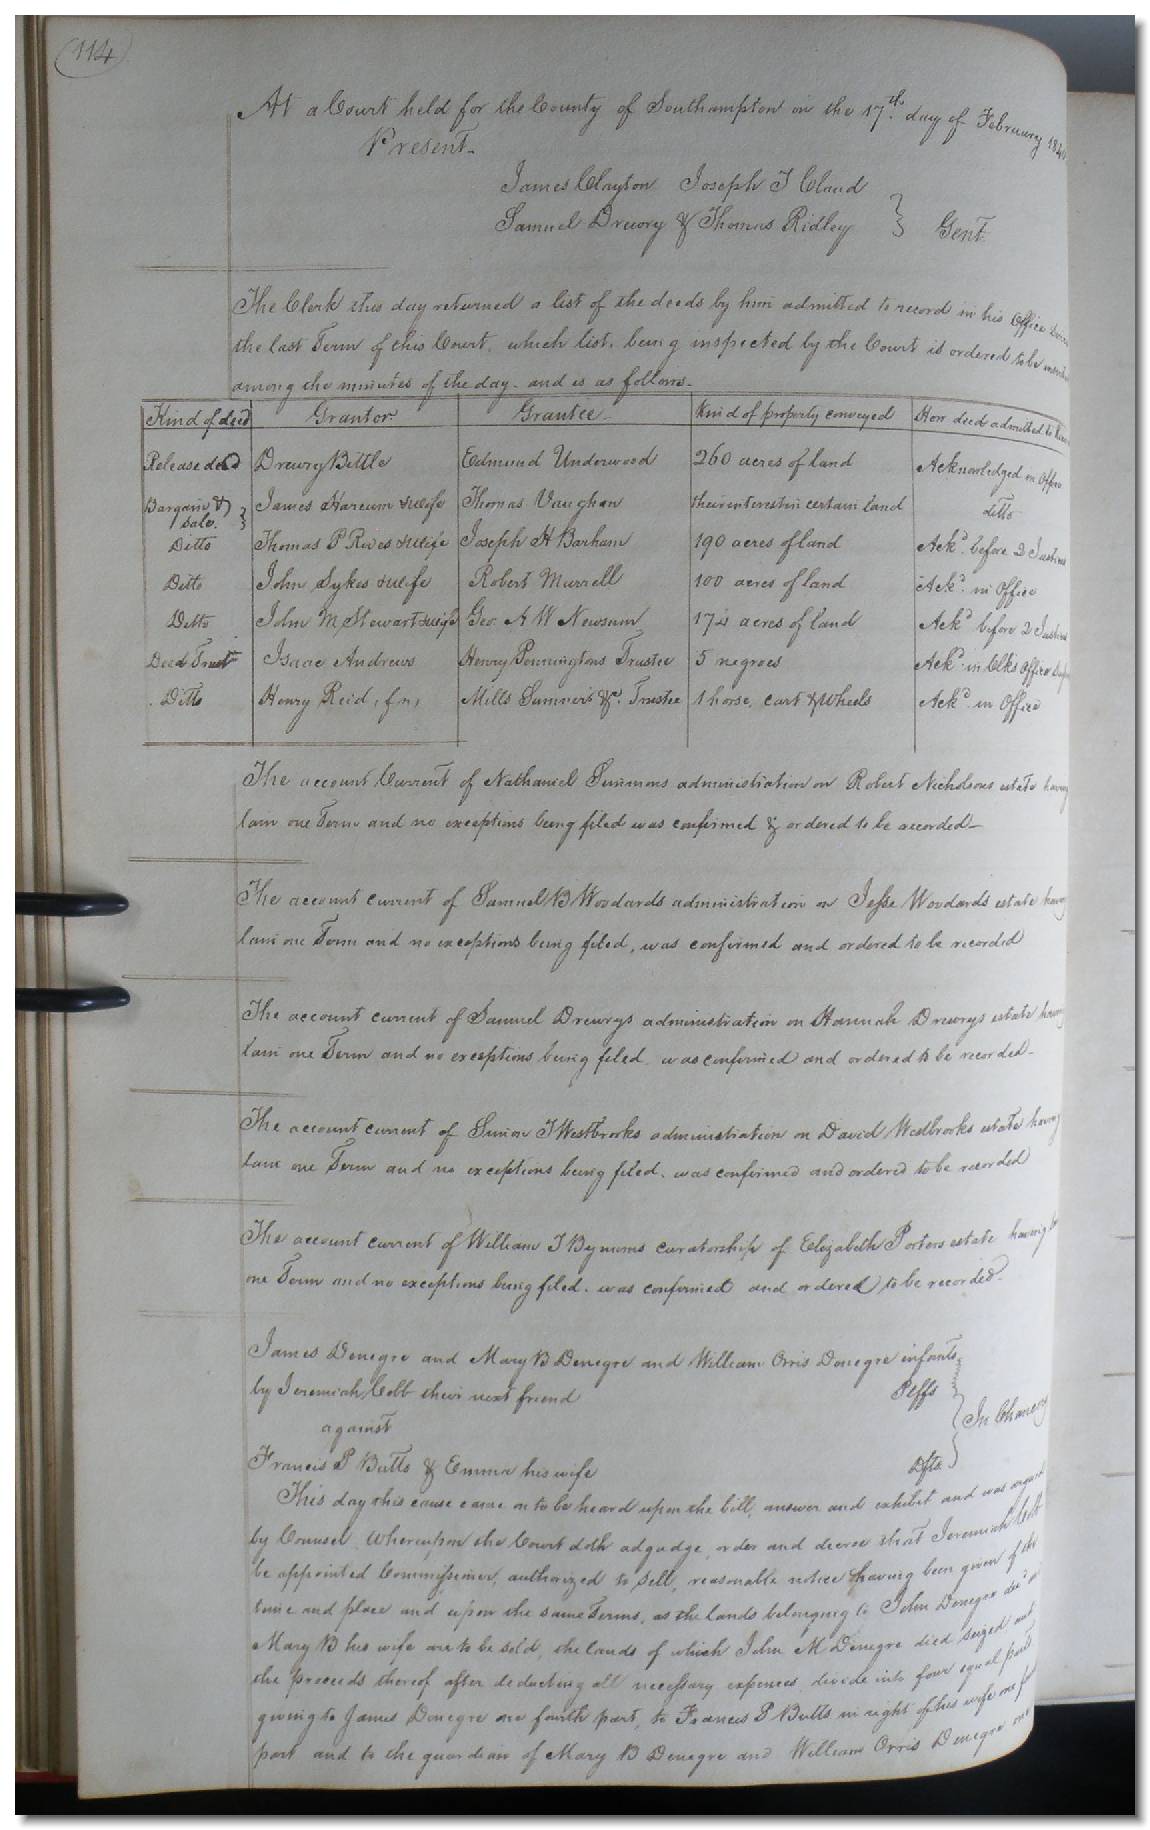 114
At a Court held for the County of Southampton on the 17th day of February
Present-
James Clayton Joseph T Claud
Samuel Drewry & Thomas Ridley } Gent.
The Clerk this day returned a list of the deeds by him admitted to record in his Office since
the last Term of this Court, which list, being inspected by the Court is ordered to be
among the minutes of the day. and is as follows-
Kind of deed Grantor Grantee Kind of property conveyed How deed admitted to
Release deed Drewry Bittle Edmund Underwood 260 acres of land Acknowledged in Office
Bargain & sale. } James Harcum & wife Thomas Vaughan their interest in certain land ditto
Ditto Thomas P Rives & wife Joseph H Barham 190 acres of land Ackd. before 2 Justices
Ditto John Sykes & wife Robert Murrell 100 acres of land Ackd. in Office
Ditto John M Stewart & wife Geo. A W Newsum 174 acres of land Ackd before 2 Justices
Deed Trust Isaac Andrews Henry Penningtons Trustee 5 negroes Ackd. in Clks Office
Ditto Henry Reid, f n, Mills Sumners &c. Trustee 1 horse, cart & Wheels Ackd. in Office
The account Current of Nathaniel Simmons administration on Robert Nicholsons estate having
lain one Term and no exceptions being filed was confirmed & ordered to be recorded-
The account current of Samuel B Woodards administration on Jesse Woodards estate having
lain one Term and no exceptions being filed, was confirmed and ordered to be recorded
The account current of Samuel Drewrys administration on Hannah Drewrys estate having
lain one Term and no exceptions being filed. was confirmed and ordered to be recorded-
The account current of T Westbrooks administration on David Westbrooks estate having
lain one Term and no exceptions being filed. was confirmed and ordered to be recorded
The account current of William T Bynums curatorship of Elizabeth Porters estate having
one Term and no exceptions being filed. was confirmed and ordered to be recorded-
James Denegre and Mary B Denegre and William Orris Denegre infants
by Jeremiah Cobb their next friend Pltffs
against } In Chancery
Francis P Butts & Emma his wife Dfts
This day this cause came on to be heard upon the bill, answer and exhibit and was argued
by Counsel. Whereupon the Court doth adjudge, order and decree that Jeremiah Cobb
be appointed Commissioner, authorized to sell, reasonable notice having been given of the
time and place and upon the same Terms, as the lands belonging to John Denegre decd
Mary B his wife are to be sold, the lands of which John M Denegre died seized and
the proceeds thereof after deducting all necessary expences, divide into four equal parts
giving to James Denegre one fourth part, to Francis P Butts in right of his wife one
part and to the guardian of Mary B Denegre and William Orris Denegre one